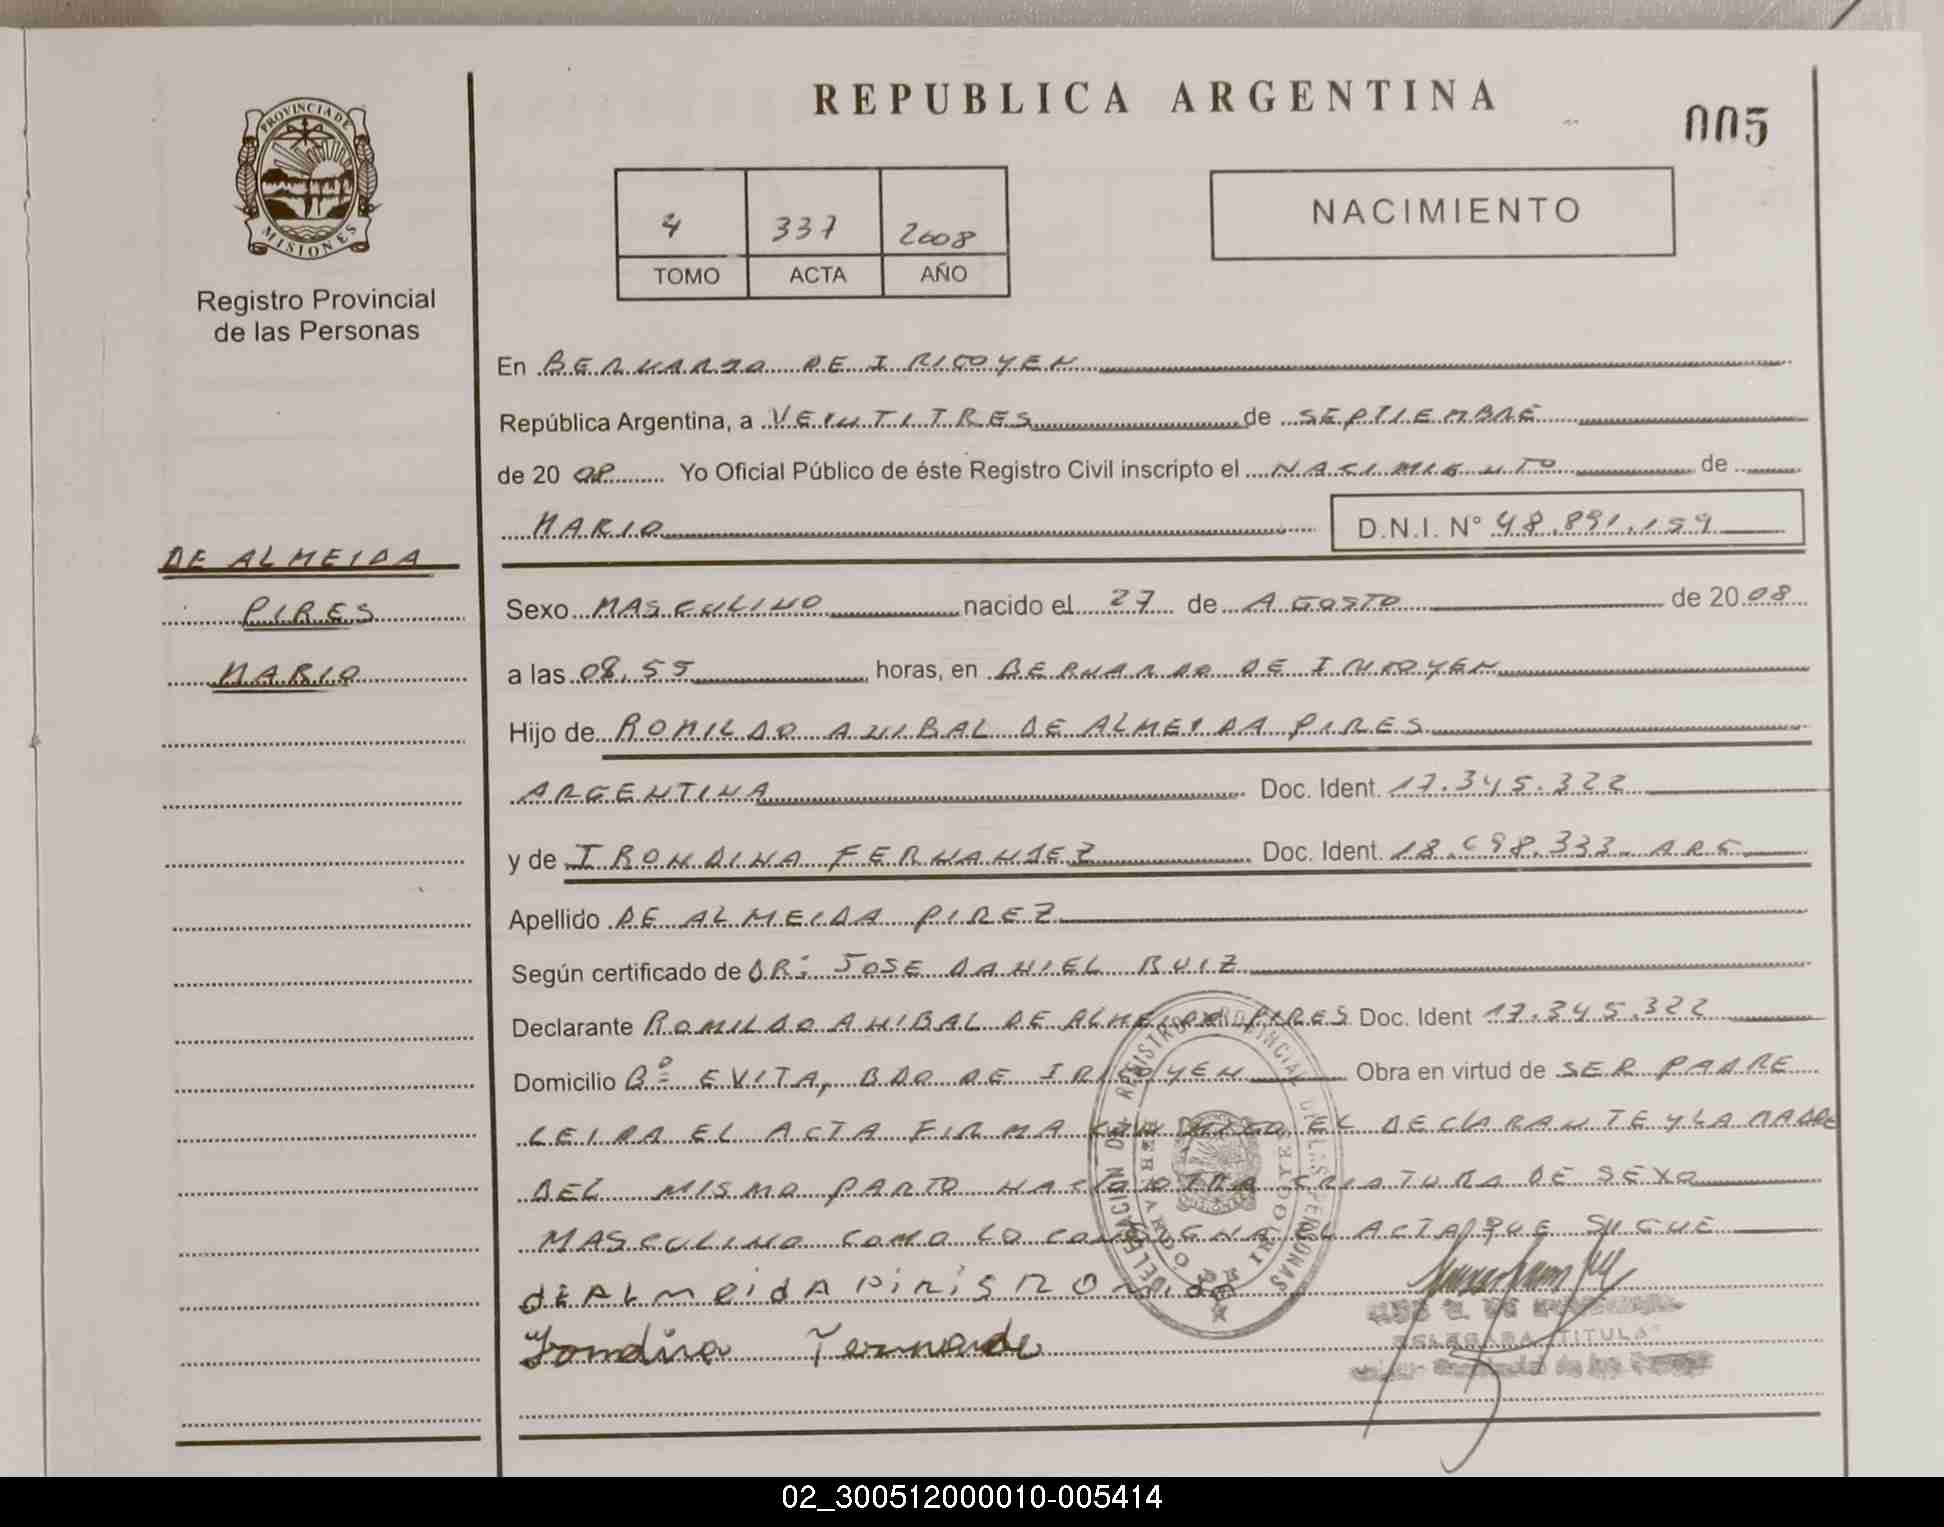 REPUBLICA ARGENTINA
005
PROVINCIA DE
MISIONES
Registro Provincial
de las Personas
4 337 2008
TOMO ACTA AÑO
NACIMIENTO
En BERNARDO DE IRIGOYEN
República Argentina, a VEINTITRES de SEPTIEMBRE
de 20 08 Yo Oficial Público de éste Registro Civil inscripto el NACIMIENTO de
MARIO D.N.I. N° 48.891.159
DE ALMEIDA
PIRES
MARIO
Sexo MASCULINO nacido el 27 de AGOSTO de 20 08
a las 08,55 horas, en BERNARDO DE IRIGOYEN
Hijo de ROMILDO ANIBAL DE ALMEIDA PIRES
ARGENTINA Doc. Ident. 17.345.322
y de IRONDINA FERNANDEZ Doc. Ident. 18.698.333 ARG
Apellido DE ALMEIDA PIREZ
Según certificado de DR: JOSE DANIEL RUIZ
Declarante ROMILDO ANIBAL DE ALMEIDA PIRES Doc. Ident 17.345.322
Domicilio Bº EVITA, BDO DE IRIGOYEN Obra en virtud de SER PADRE
LEIDA EL ACTA FIRMA CONMIGO EL DECLARANTE Y LA MADRE
DEL MISMO PARTO NACIO OTRA CRIATURA DE SEXO
MASCULINO COMO LO CONSIGNA EL ACTA QUE SIGUE
DELEGACION DEL REGISTRO PROVINCIAL DE LAS PERSONAS
BERNARDO DE IRIGOYEN
dE ALMEidA PiRiS ROMildo
DELEGADA TITULAR
02_300512000010-005414